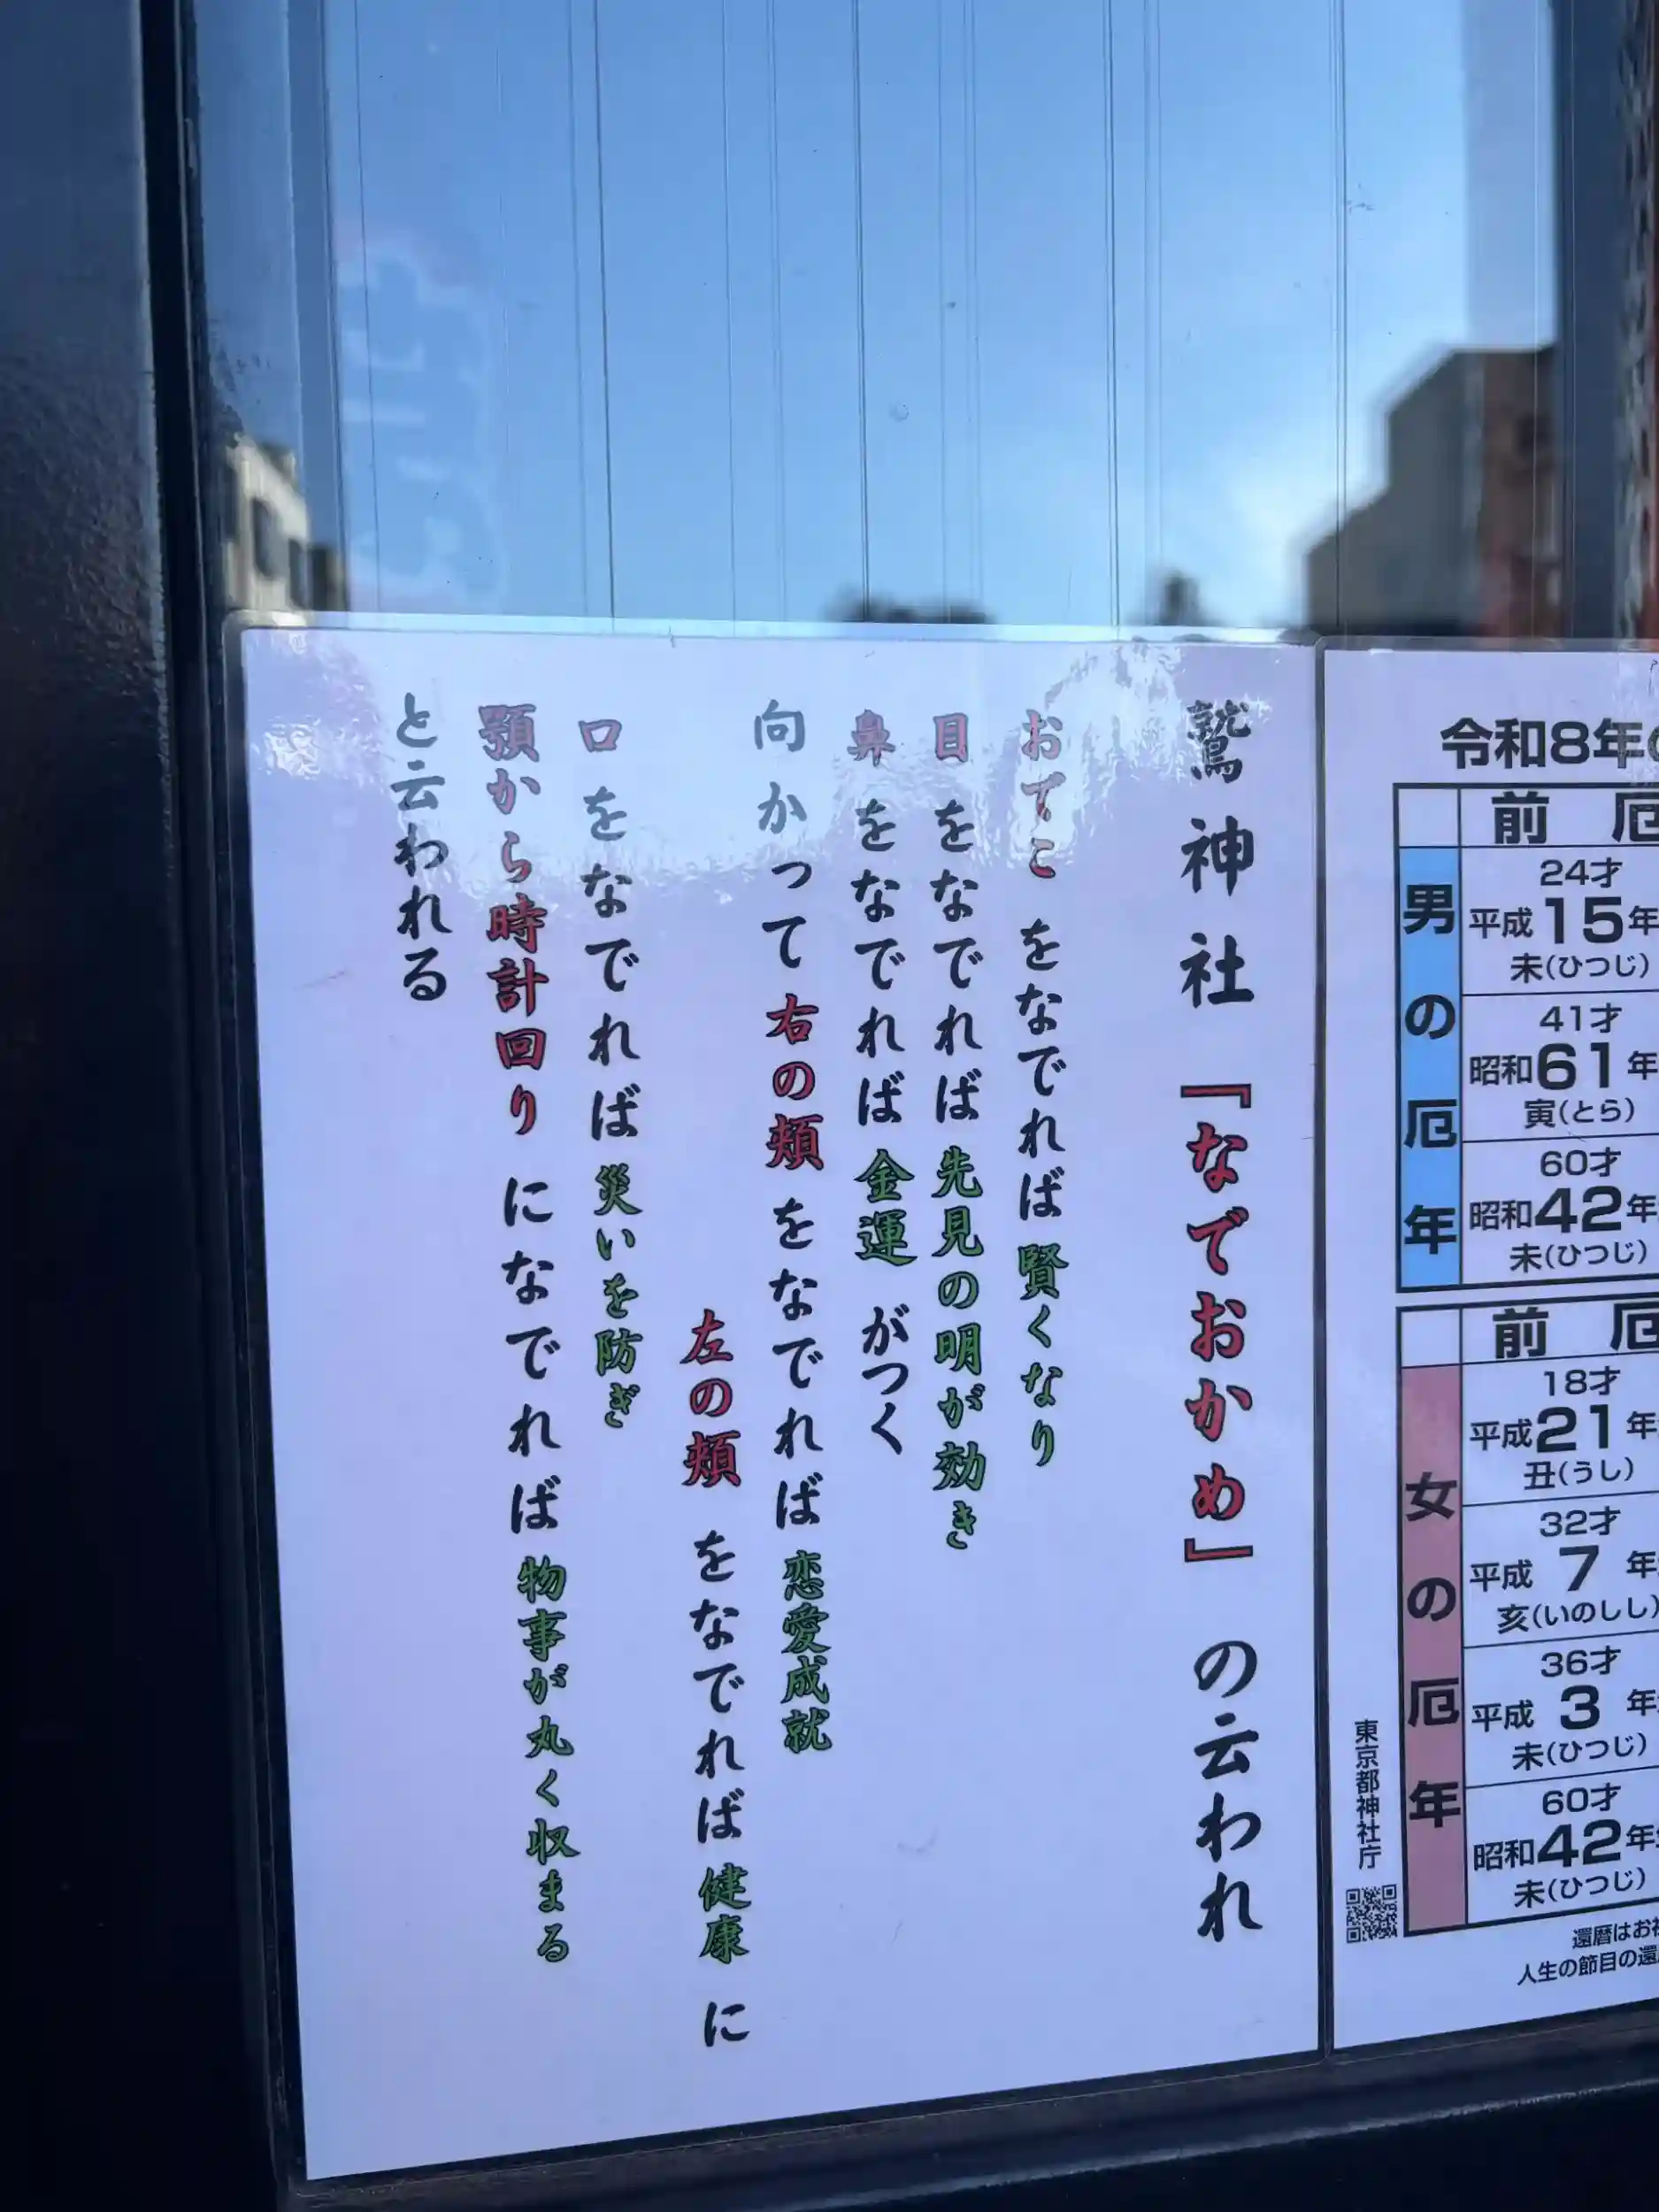 鷲神社『なでおかめ』の云われ
おでこをなでれば賢くなり
目をなでれば先見の明が効き
鼻をなでれば金運がつく
向かって右の頬をなでれば恋愛成就
左の頬をなでれば健康に
口をなでれば災いを防ぎ
顎から時計回りになでれば物事が丸く収まる
と云われる
令和8年
前厄
男の厄年
24才
平成15年
未(ひつじ)
41才
昭和61年
寅(とら)
60才
昭和42年
未(ひつじ)
前厄
女の厄年
18才
平成21年
丑(うし)
32才
平成7年
亥(いのしし)
36才
平成3年
未(ひつじ)
60才
昭和42年
未(ひつじ)
還暦はお
人生の節目の還
東京都神社庁